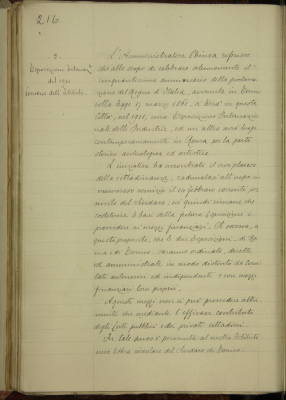 216
3.
Esposizioni internaz.
del 1911
Concorso dell'Istituto.
L'Amministratore Chiesa riferisce
che allo scopo di celebrare solennemente il
cinquantesimo anniversario della proclama-
zione del Regno d'Italia, avvenuta in Torino
colla legge 17 marzo 1861, si terrà in questa
Città, nel 1911, una Esposizione Internazio-
nale delle Industrie, ed un'altra avrà luogo
contemporaneamente in Roma per la parte
storica archeologica ed artistica.
L'iniziativa ha incontrato il vivo plauso
della cittadinanza, radunatasi all'uopo in
numeroso comizio il 20 febbraio corrente per
invito del Sindaco; ed quindi rimane che
costituire le basi della futura Esposizione e
provvedere ai mezzi finanziari. Si osserva, a
questo proposito, che le due Esposizioni, di Ro-
ma e di Torino, saranno ordinate, dirette
ed amministrate in modo distinto da Comi-
tati autonomi ed indipendenti e con mezzi
finanziari loro propri.
A questi mezzi non si può provvedere altri-
menti che mediante l'efficace contributo
degli Enti pubblici e dei privati cittadini.
In tale senso è pervenuta al nostro Istituto
una lettera circolare del Sindaco di Torino.